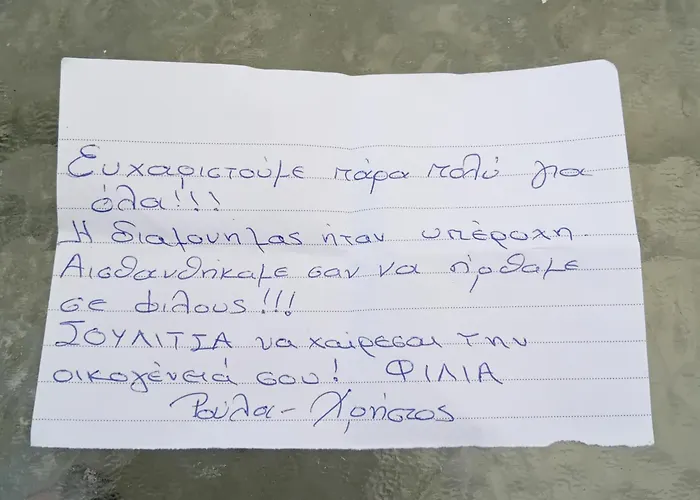 Ευχαριστούμε πάρα πολύ για
όλα!!!
Η διαμονή μας ήταν υπέροχη.
Αισθανθήκαμε σαν να ήρθαμε
σε φίλους!!!
ΣΟΥΛΙΤΣΑ να χαίρεσαι την
οικογένειά σου! ΦΙΛΙΑ
Ρούλα - Χρήστος